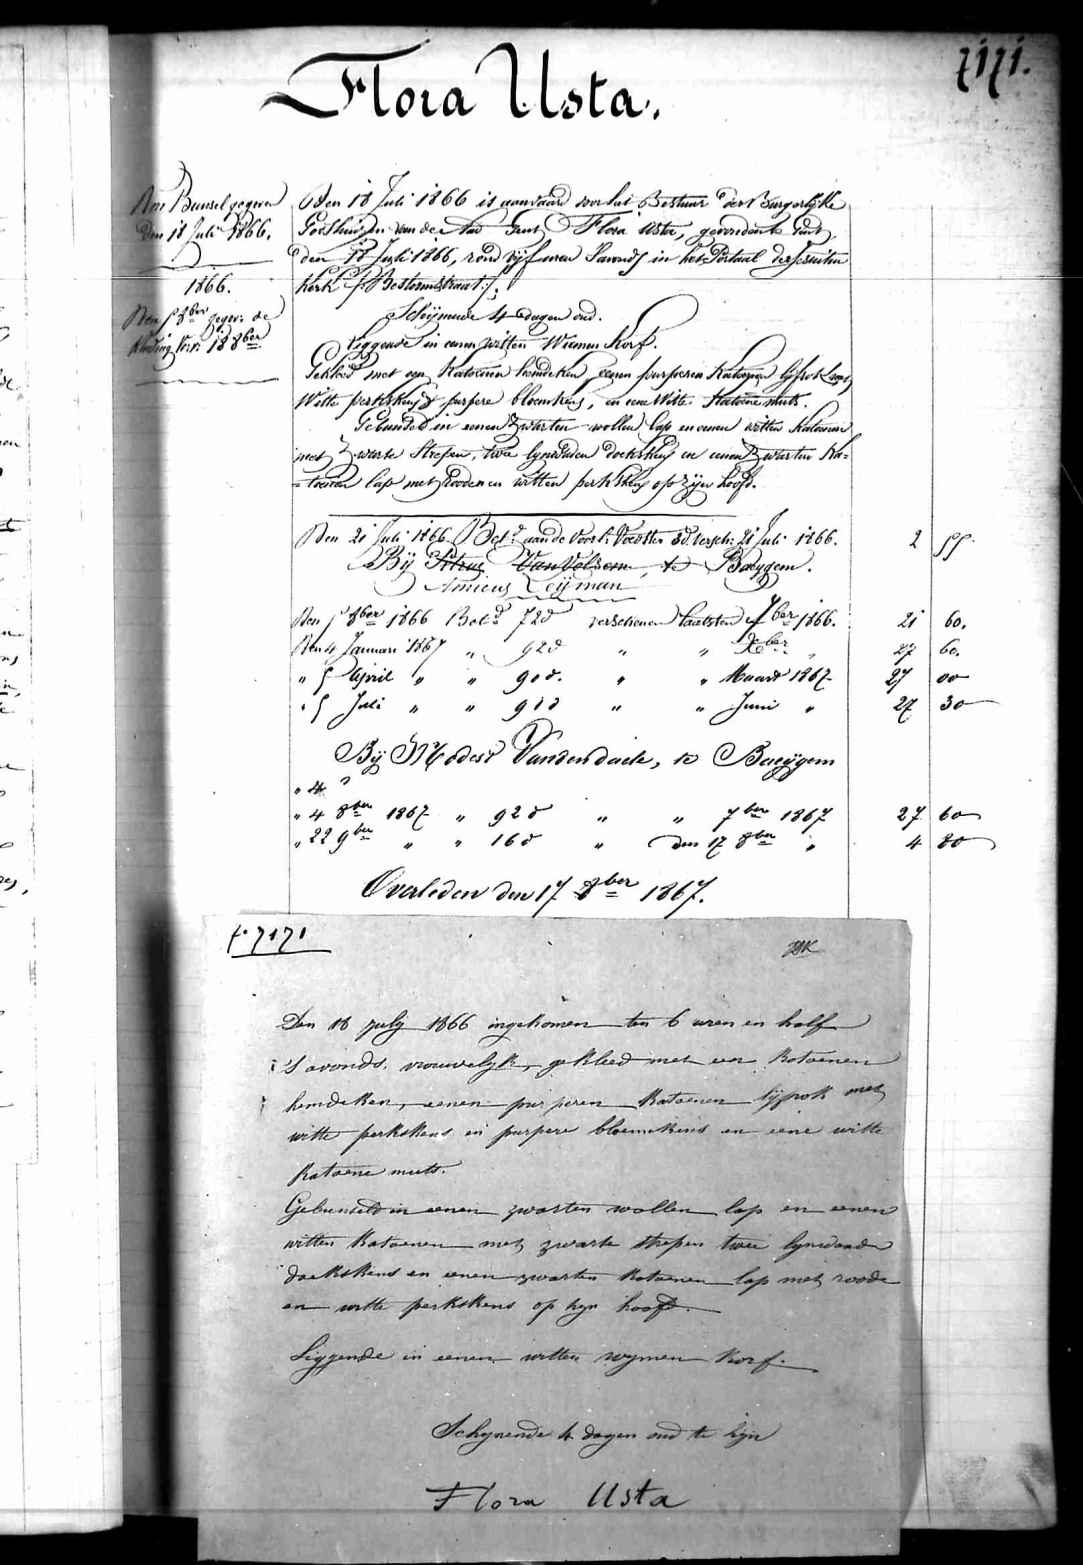 7171.
Flora Usta.
Den Bunsel gegeven
den 18 Juli 1866.
1866.
Den 5 8ber gegev: de
kleeding Verv: 18 8ber
Den 18 Juli 1866 is aanvaard voor het Bestuur der Burgerlijke
Godshuizen van der Stad Gent Flora Usta, gevonden te Gent
den 18 Juli 1866, rond vijf uren 's avonds in het Portaal der Jesuiten
kerk /: Bestormstraat :/
Schijnende 4 dagen oud.
Liggende in eenen witten Wiemen Korf.
Gekleed met een Katoenen hemdeken, eenen purperen Katoenen lijfrok met
Witte perkskens & purpere bloemkens, en eene Witte Katoene muts.
Gebundeld in eenen Zwarten wollen lap en eenen witten Katoenen
met Zwarte Strepen, twee lijnwaden doekskens en eenen Zwarten Ka-
-toenen lap met Rooden en witten perkskens op zijn hoofd.
Den 21 Juli 1866. Bet.d aan de Voorl: Voedster 3 d versch: 21 Juli 1866. 2 55.
Bij Petrus Van Volsem, te Baeygem.
Amicus Leijman
Den 5 8ber 1866 Bet.d 72 d verschenen laatsten 7ber 1866. 21 60.
Den 4 Januari 1867 " 92 d " " Xber " 27 60.
" 5 April " " 90 d. " " Maart 1867 27 00
" 5 Juli " " 91 d " " Juni " 27 30
Bij Modest Vandendaele, te Baeygem
" 4 "
" 4 8ber 1867 " 92 d " " 7ber 1867 27 60
" 22 9ber " " 16 d " den 17 8ber " 4 80
Overleden den 17 8ber 1867.
f° 7171
Den 18 july 1866 ingekomen ten 6 uren en half
's avonds. vrouwelyk, gekleed met een katoenen
hemdeken, eenen purperen katoenen lijfrok met
witte perkskens en purpere bloemekens en eene witte
katoene muts.
Gebundeld in eenen zwarten wollen lap en eenen
witten katoenen met zwarte strepen twee lynwaade
doekskens en eenen zwarten katoenen lap met roode
en witte perkskens op zyn hoofd.
Liggende in eenen witten wymen korf.
Schynende 4 dagen oud te zyn
Flora Usta